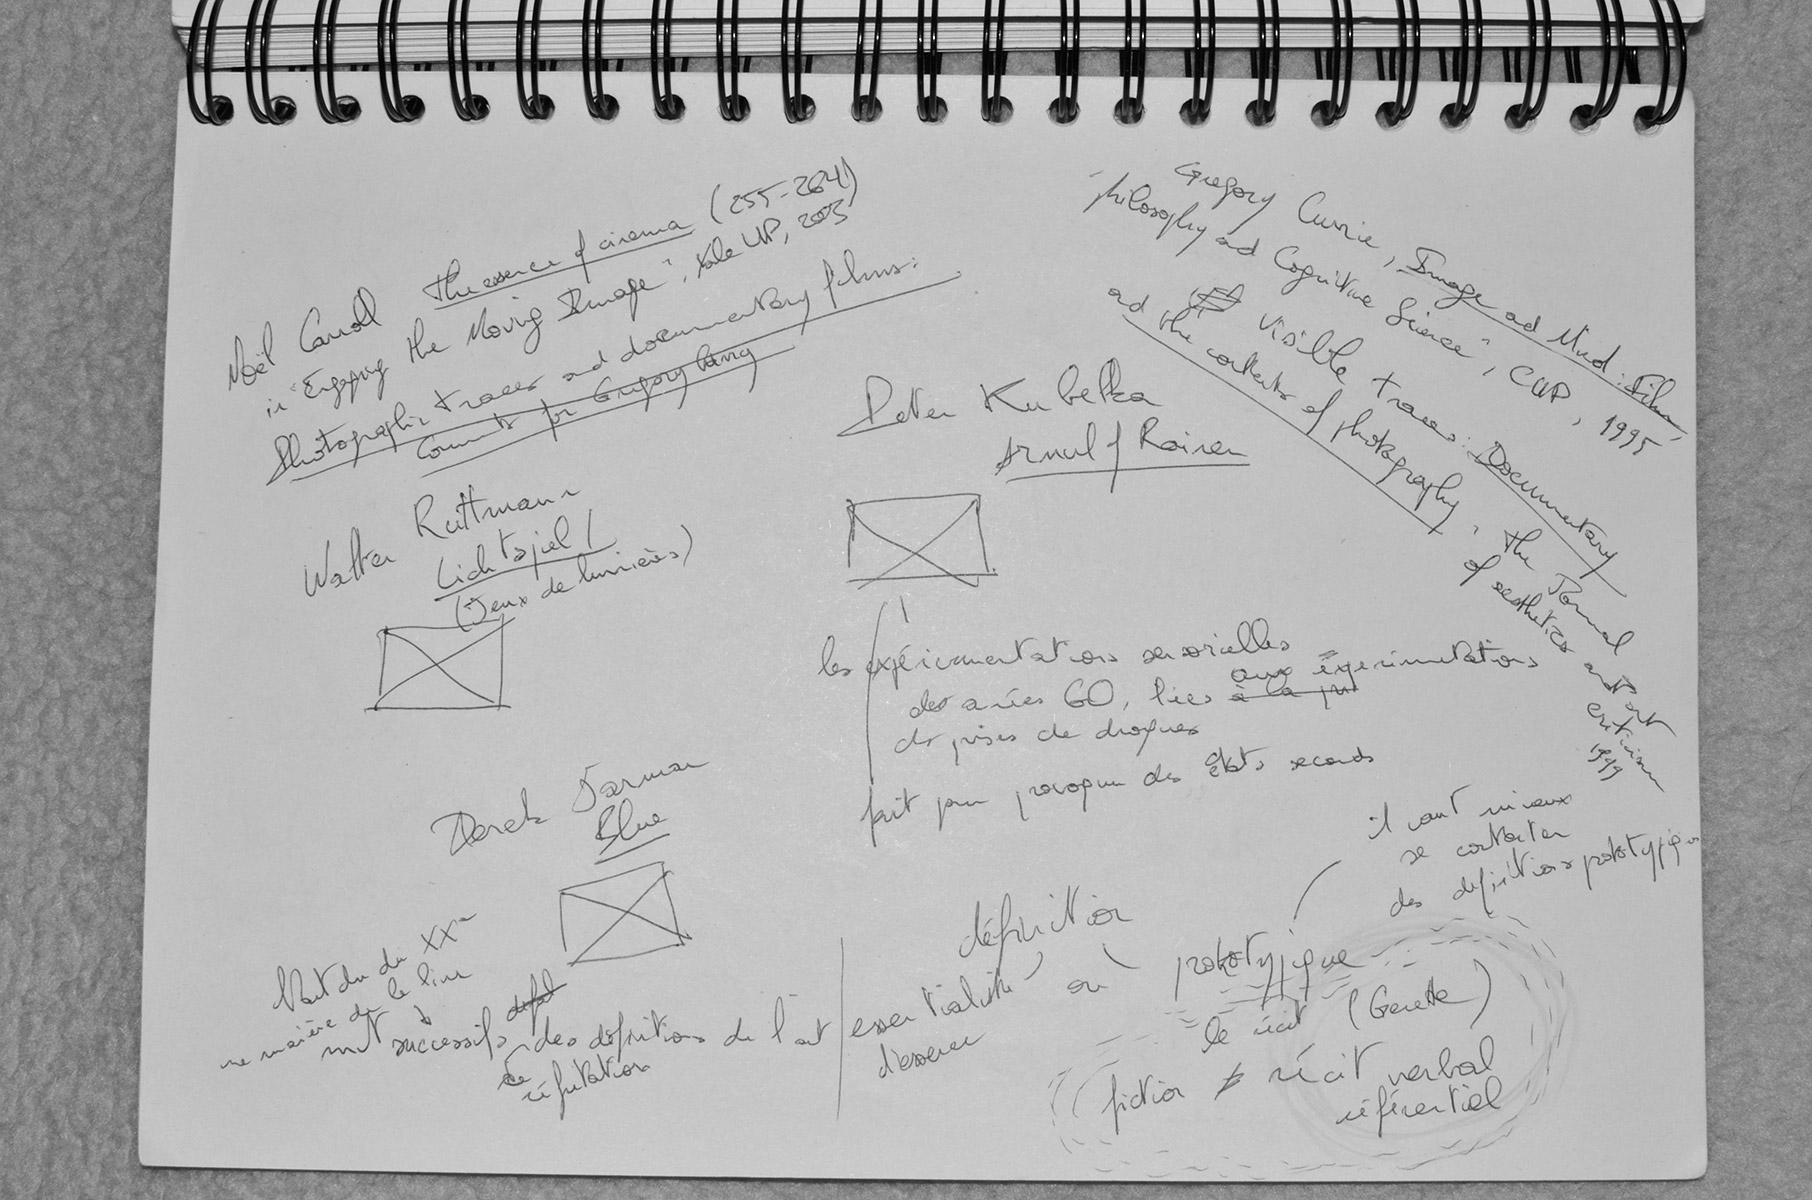 Noël Carroll The essence of cinema (255-264)
in "Engaging the Moving Image", Yale UP, 2003
Photographic traces and documentary films:
Comments for Gregory
Gregory Currie, Image and Mind: Film,
philosophy and Cognitive Science", CUP, 1995
visible traces: Documentary
and the contents of photography, the Journal
of aesthetics and art
criticism
1999
Peter Kubelka
Arnulf Rainer
Walter Ruttmann
Lichtspiel
(Jeux de lumières)
les expérimentations sensorielles
des années 60, liées à la aux expérimentations
de prises de drogues
fait pour provoquer des états seconds
Derek Jarman
Blue
il vaut mieux
se contenter
des définitions prototypiques
définition
essentialiste ou prototypique
d'essence
du XXe
successifs des définitions de l'art
réfutation
le récit (Genette)
fiction ≠ récit verbal
référentiel